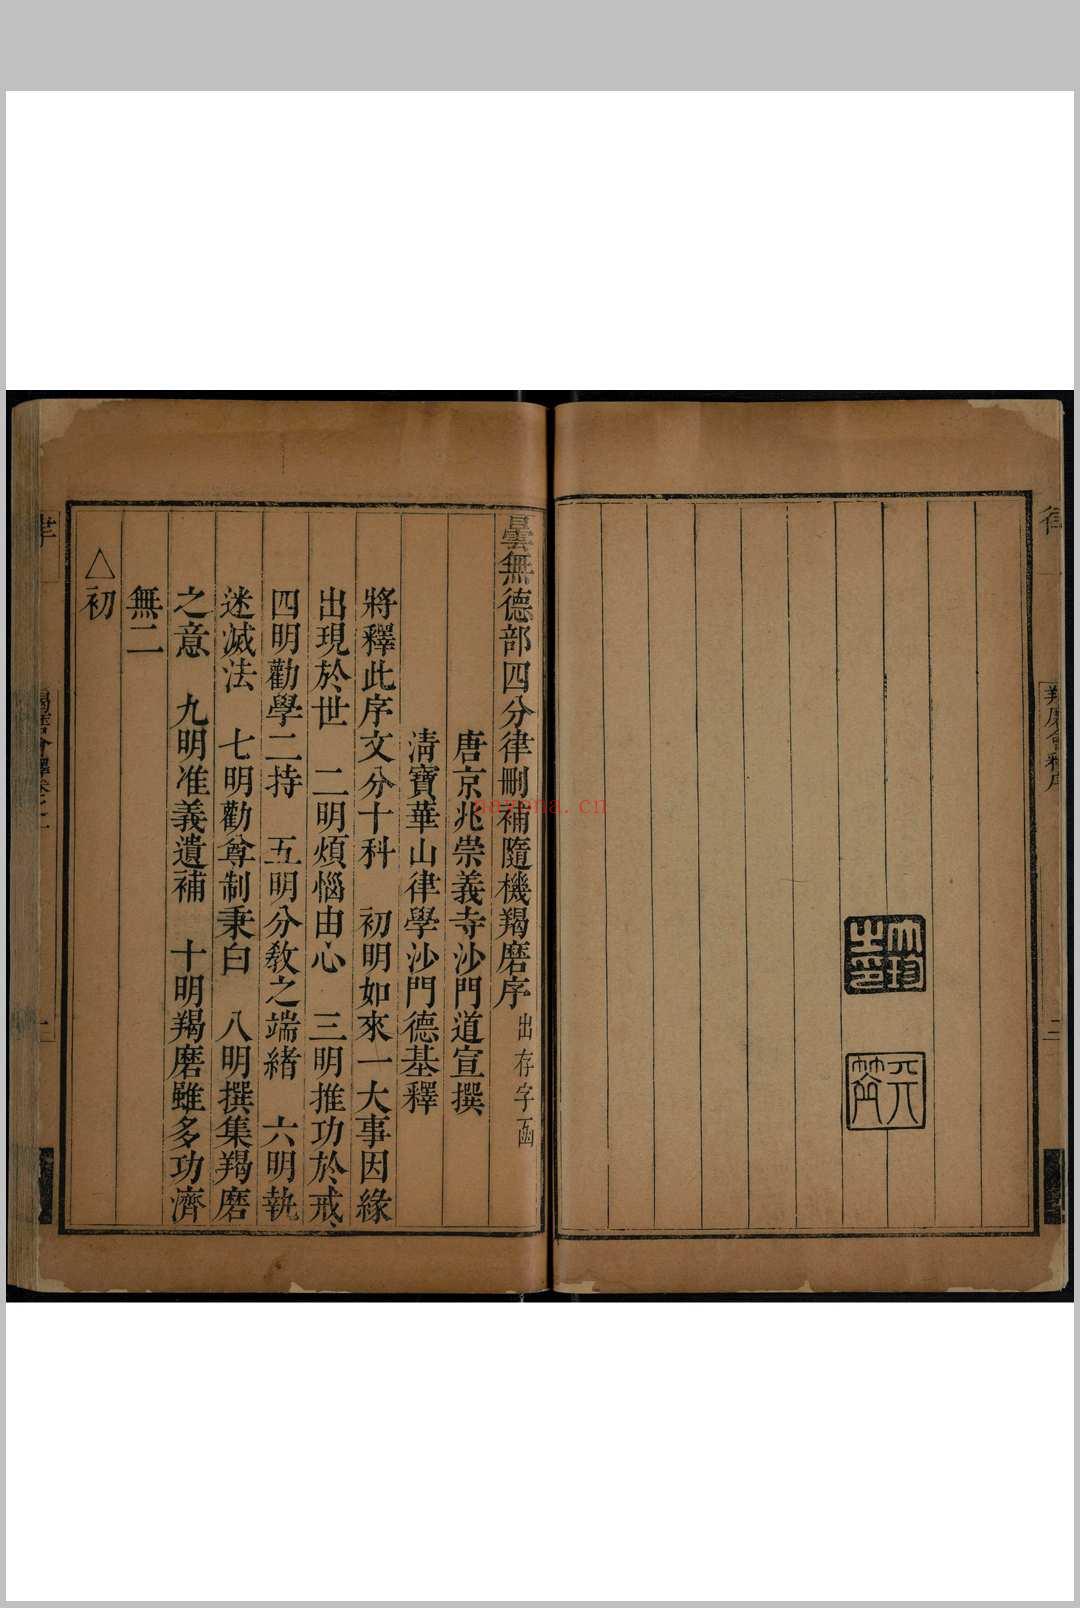 羯磨會釋序
二
曇無德部四分律刪補隨機羯磨序 出存字函
唐京兆崇義寺沙門道宣撰
清寶華山律學沙門德基釋
將釋此序文分十科 初明如來一大事因緣
出現於世 二明煩惱由心 三明推功於戒、
四明勸學二持 五明分教之端緒 六明執
迷滅法 七明勸尊制秉白 八明撰集羯磨
之意 九明准義遺補 十明羯磨雖多功濟
無二
△初